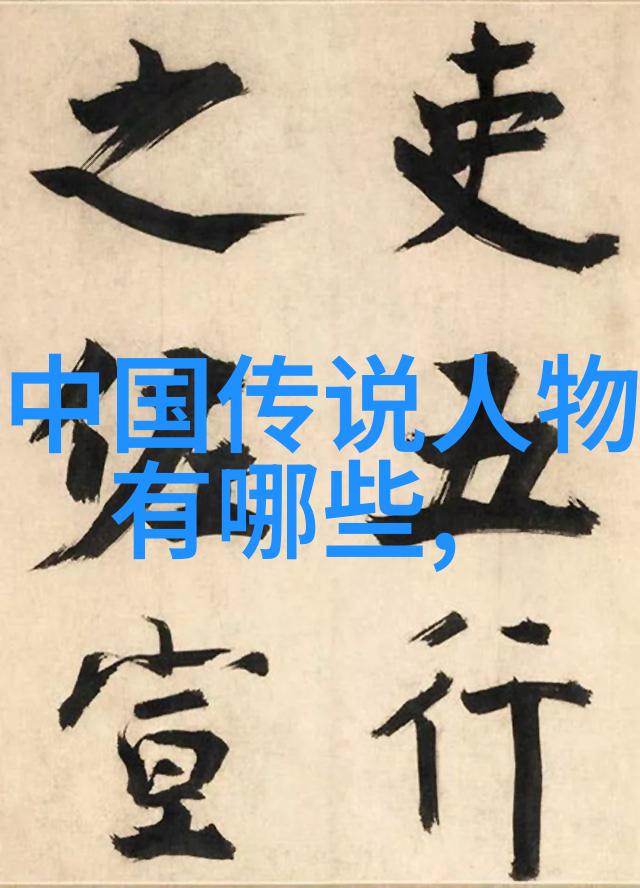 吏五行
之侄宣
中国传说人物
有哪些,